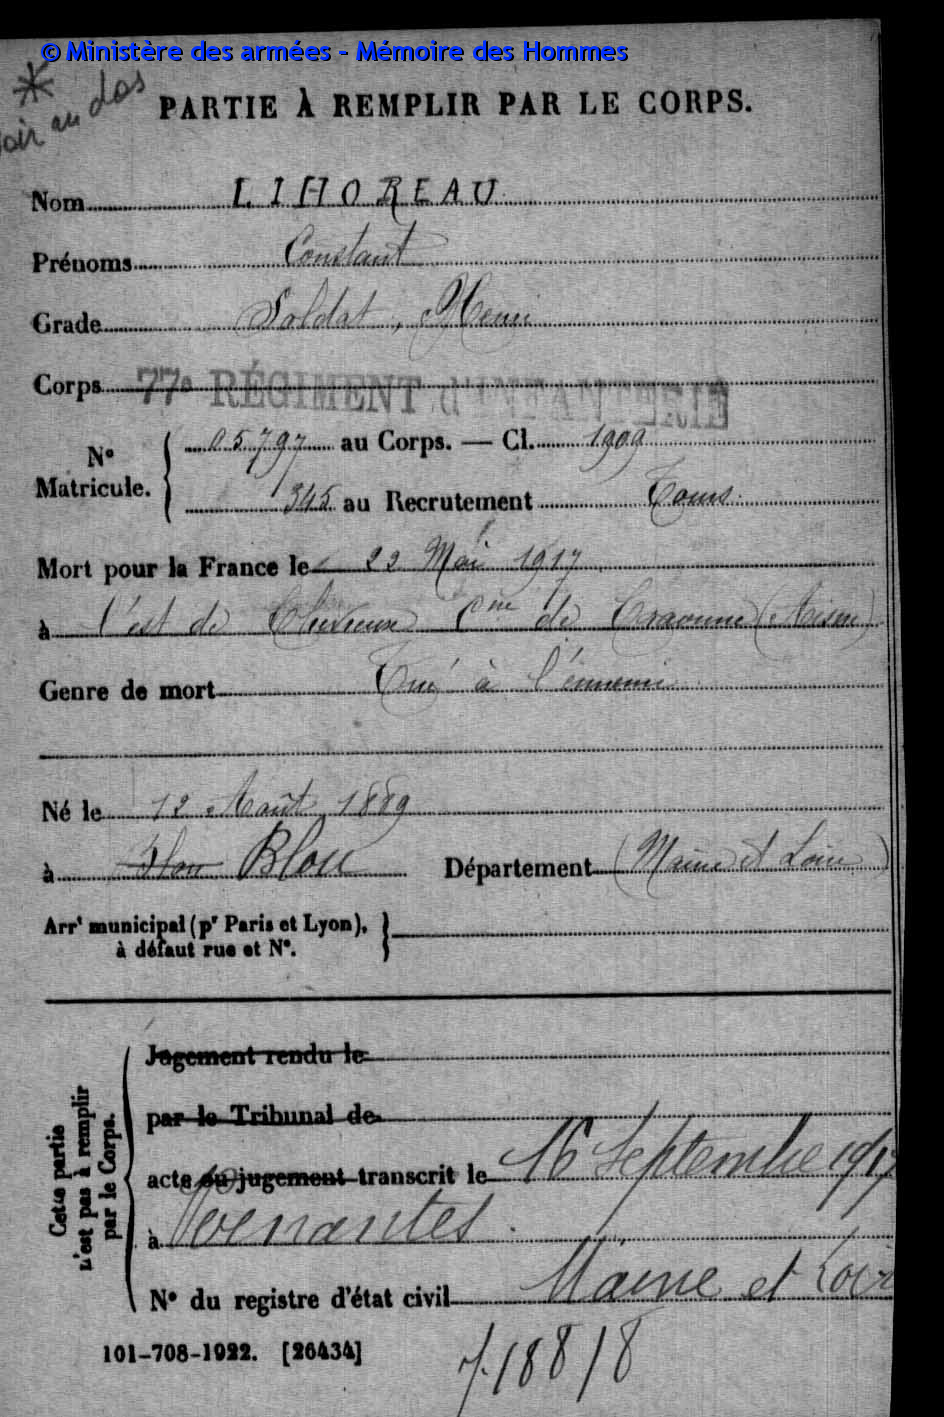 © Ministère des armées - Mémoire des Hommes
*
voir au dos
PARTIE À REMPLIR PAR LE CORPS.
Nom LIHOREAU
Prénoms Constant
Grade Soldat, Henri
Corps 77e RÉGIMENT d'INFANTERIE
N° Matricule. 05797 au Corps. — Cl. 1909
345 au Recrutement Tours
Mort pour la France le 22 Mai 1917
à l'est de Chevreux Cne de Craonne (Aisne)
Genre de mort Tué à l'ennemi
Né le 12 Août 1889
à Blou Département (Maine et Loire)
Arrt municipal (pr Paris et Lyon),
à défaut rue et N°.
Cette partie n'est pas à remplir par le Corps.
Jugement rendu le
par le Tribunal de
acte ou jugement transcrit le 16 Septembre 1917
à Vernantes.
Maine et Loir
N° du registre d'état civil
101-708-1922. [26434]